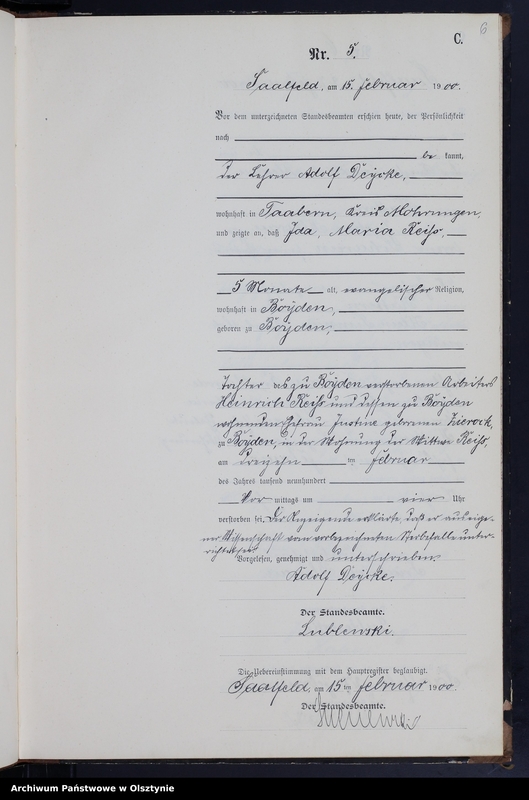 6
C.
Nr. 5.
Saalfeld, am 15. Februar 1900.
Vor dem unterzeichneten Standesbeamten erschien heute, der Persönlichkeit
nach
be kannt,
der Lehrer Adolf Deycke,
wohnhaft in Taabern, Kreis Mohrungen,
und zeigte an, daß Ida, Maria Reiß,
5 Monate alt, evangelischer Religion,
wohnhaft in Böyden,
geboren zu Böyden,
Tochter des zu Böyden verstorbenen Arbeiters
Heinrich Reiß und dessen zu Böyden
wohnenden Ehefrau Justine geborenen Zierock,
zu Böyden, in der Wohnung der Wittwe Reiß,
am dreizehn ten Februar
des Jahres tausend neunhundert
Vor mittags um vier Uhr
verstorben sei. Der Anzeigende erklärte, daß er aus eige-
ner Wissenschaft vom vorbezeichneten Sterbefalle unter-
richtet sei.
Vorgelesen, genehmigt und unterschrieben.
Adolf Deycke.
Der Standesbeamte.
Lublewski.
Die Uebereinstimmung mit dem Hauptregister beglaubigt.
Saalfeld, am 15 ten Februar 1900.
Der Standesbeamte.
Archiwum Państwowe w Olsztynie